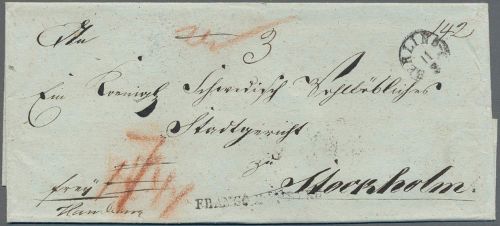 An
3
142
BERLIN
11
Ein Koenigl. Schwedisch Wohllöbliches
Stadtgericht
zu
Stockholm.
frey
Hamburg
FRANCO